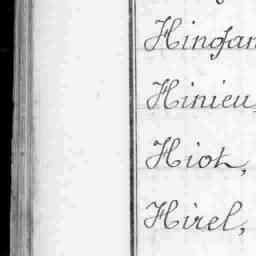 Hingan
Hinieu,
Hiot,
Hirel,